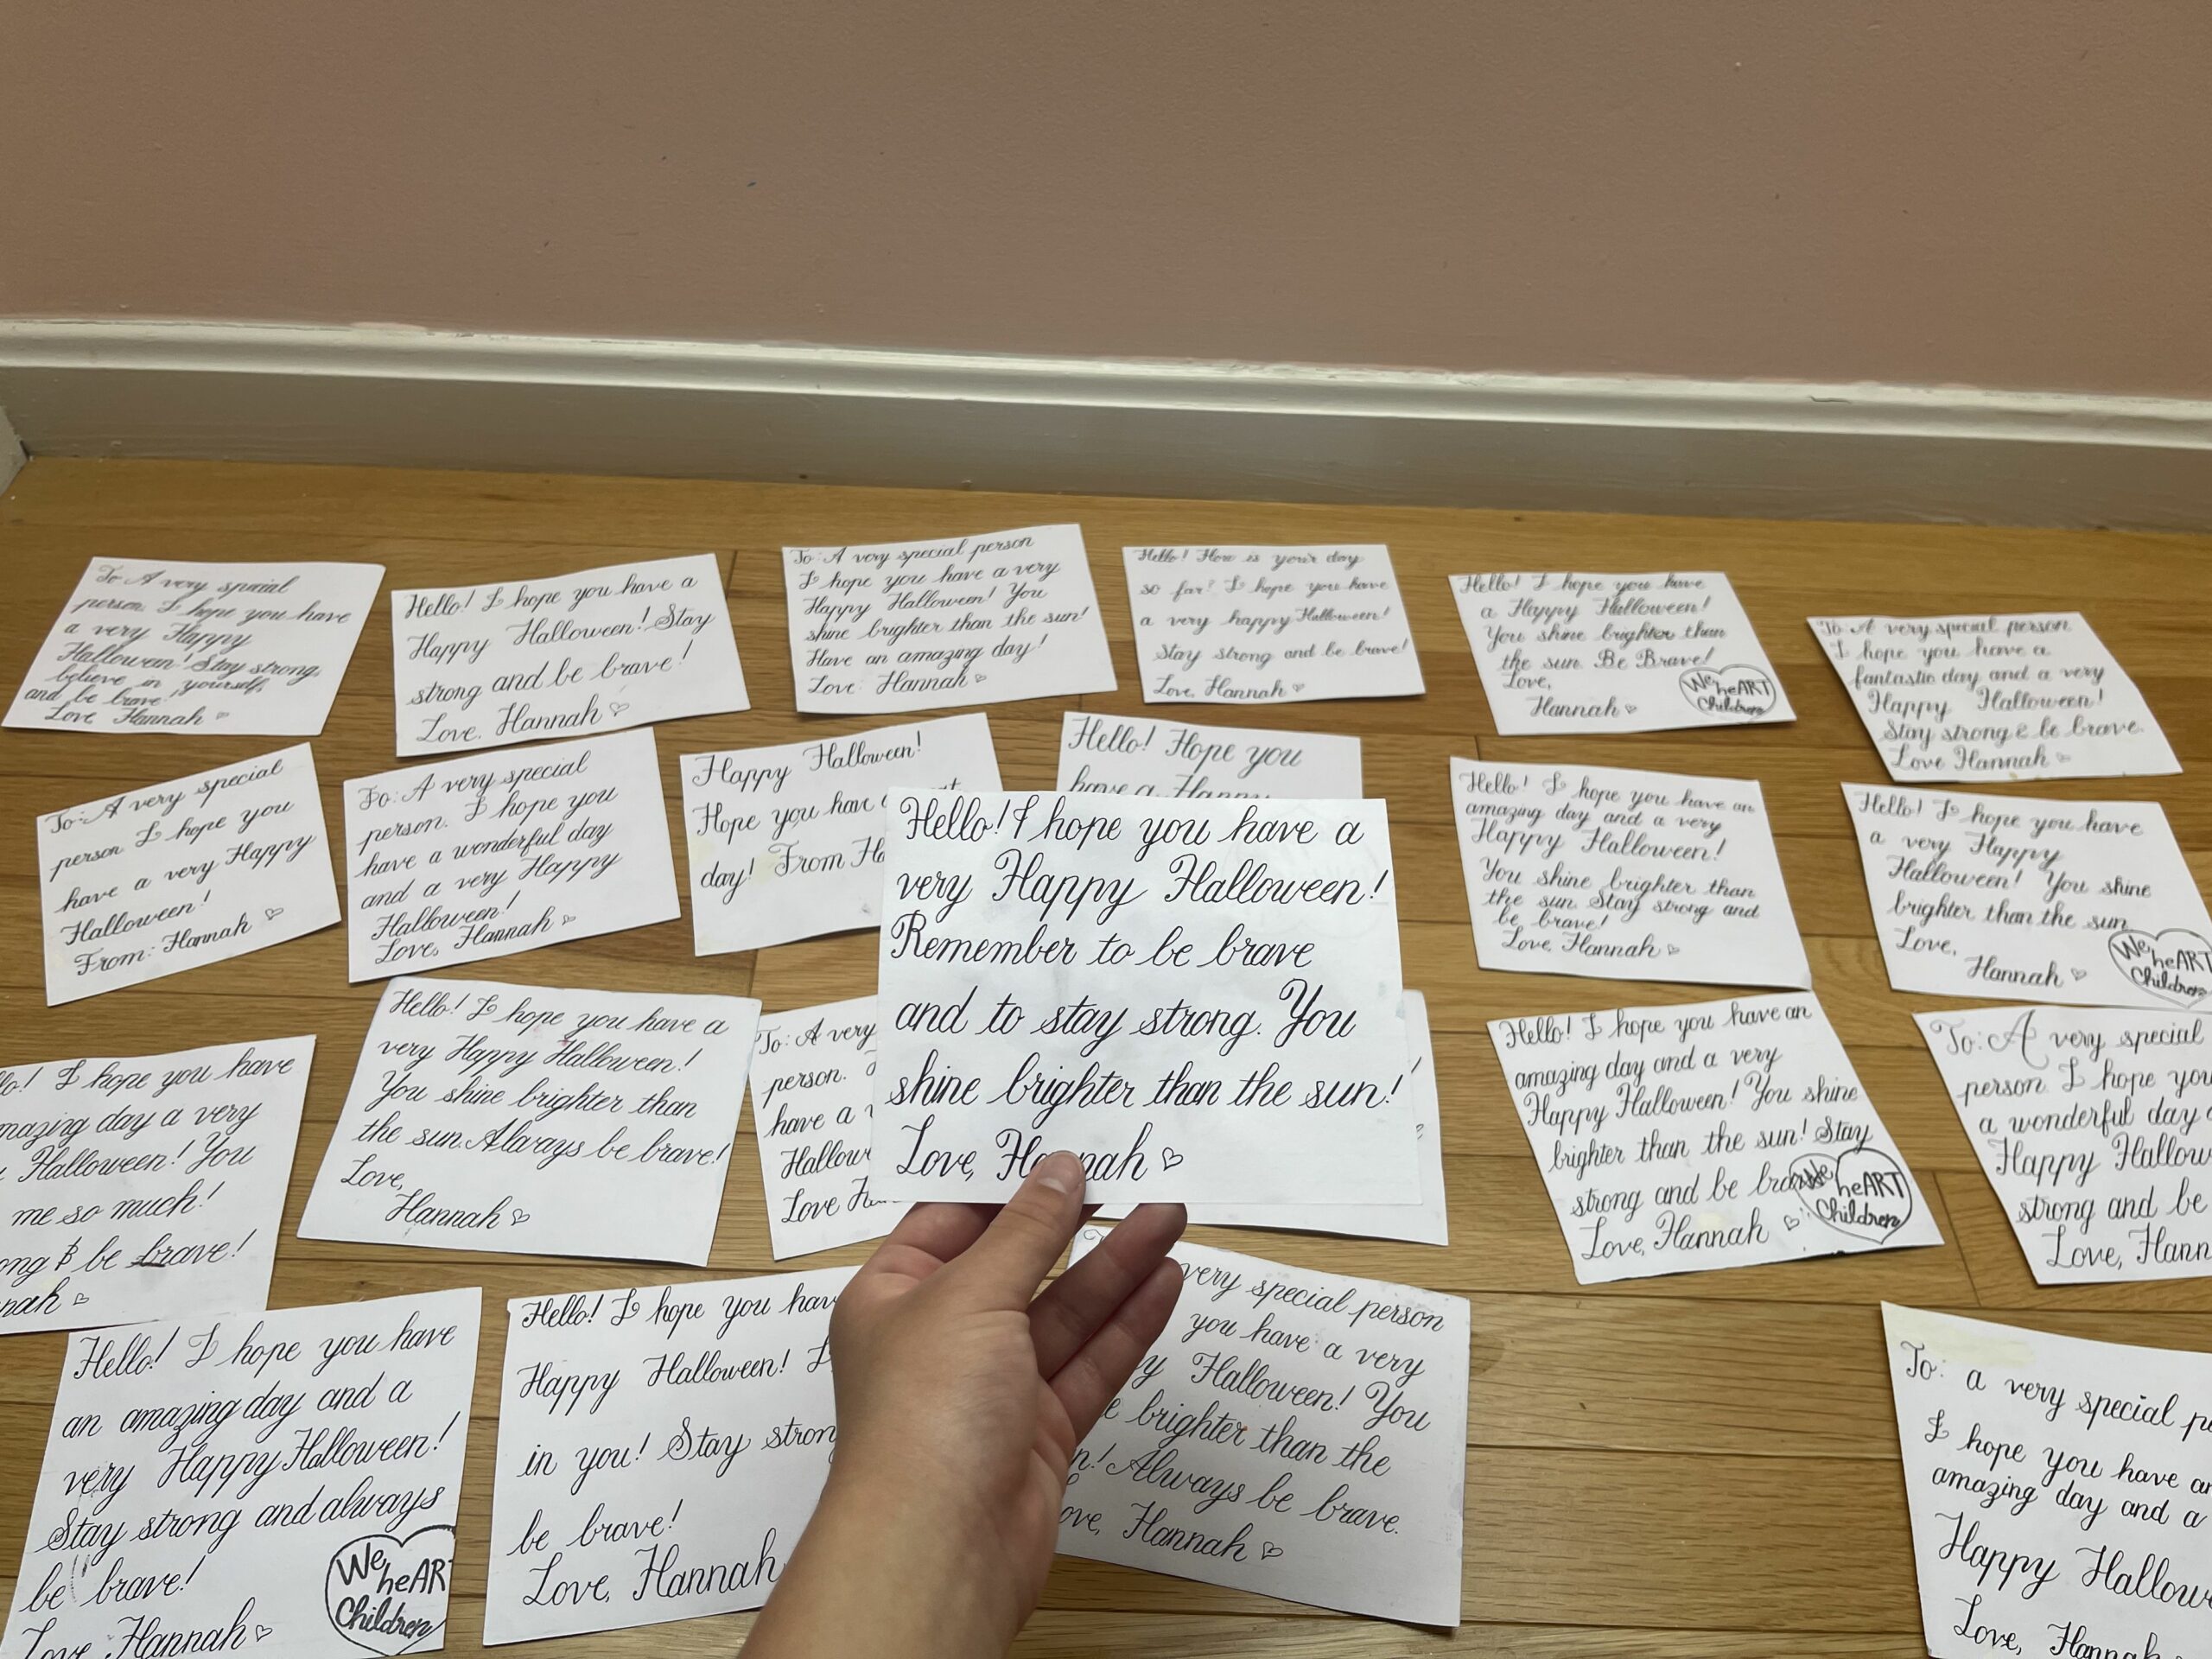 To: A very special
person. I hope you have
a very Happy
Halloween! Stay strong,
believe in yourself,
and be brave!
Love Hannah
Hello! I hope you have a
Happy Halloween! Stay
strong and be brave!
Love, Hannah
To: A very special person
I hope you have a very
Happy Halloween! You
shine brighter than the sun!
Have an amazing day!
Love: Hannah
Hello! How is your day
so far? I hope you have
a very happy Halloween!
Stay strong and be brave!
Love, Hannah
Hello! I hope you have
a Happy Halloween!
You shine brighter than
the sun. Be Brave!
Love,
Hannah
We heART
Children
To: A very special person
I hope you have a
fantastic day and a very
Happy Halloween!
Stay strong & be brave.
Love Hannah
To: A very special
person I hope you
have a very Happy
Halloween!
From: Hannah
To: A very special
person. I hope you
have a wonderful day
and a very Happy
Halloween!
Love, Hannah
Happy Halloween!
Hope you have
day! From
Hello! Hope you
have a Happy
Hello! I hope you have a
very Happy Halloween!
Remember to be brave
and to stay strong. You
shine brighter than the sun!
Love, Hannah
Hello! I hope you have an
amazing day and a very
Happy Halloween!
You shine brighter than
the sun. Stay strong and
be brave!
Love, Hannah
Hello! I hope you have
a very Happy
Halloween! You shine
brighter than the sun
Love,
Hannah
We heART
Children
I hope you have
day a very
Halloween! You
me so much!
$ be brave!
Hello! I hope you have a
very Happy Halloween!
You shine brighter than
the sun. Always be brave!
Love,
Hannah
To: A very
person.
have a
Love
Hello! I hope you have an
amazing day and a very
Happy Halloween! You shine
brighter than the sun! Stay
strong and be
Love, Hannah
We heART
Children
To: A very special
person. I hope you
a wonderful day
Happy
strong and be
Love,
Hello! I hope you have
an amazing day and a
very Happy Halloween!
Stay strong and always
be brave!
Love Hannah
We
Children
Hello! I hope you
Happy Halloween!
in you! Stay
be brave!
Love, Hannah
very special person
you have a very
Halloween! You
brighter than the
Always be brave.
Hannah
To: a very special
I hope you have
amazing day and a
Happy
Love,